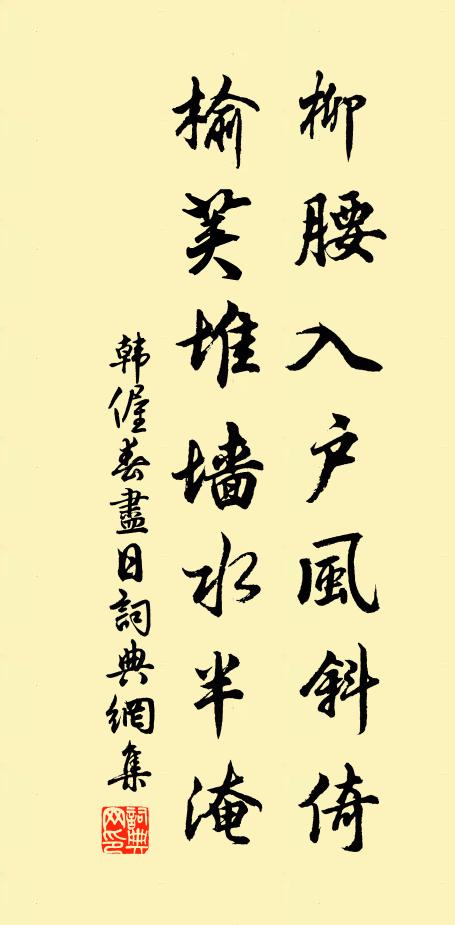 柳腰入户風斜倚
榆荚堆墙水半淹
韩偓春盡日詞典網集
詞典网印